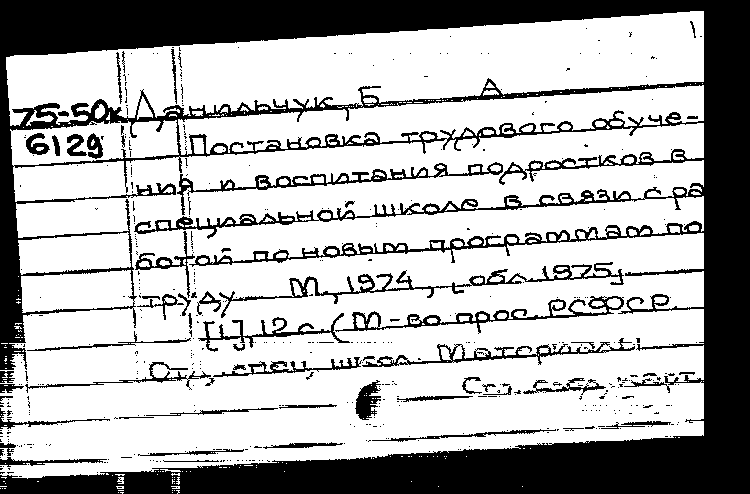 75-50к Данильчук, Б А
6129 Постановка трудового обуче-
ния и воспитания подростков в
специальной школе в связи с ра
ботой по новым программам по
труду М., 1974, [обл. 1975].
[1], 12 с. (М-во прос. РСФСР.
Отд. спец. школ. Материалы
См. след. карт.